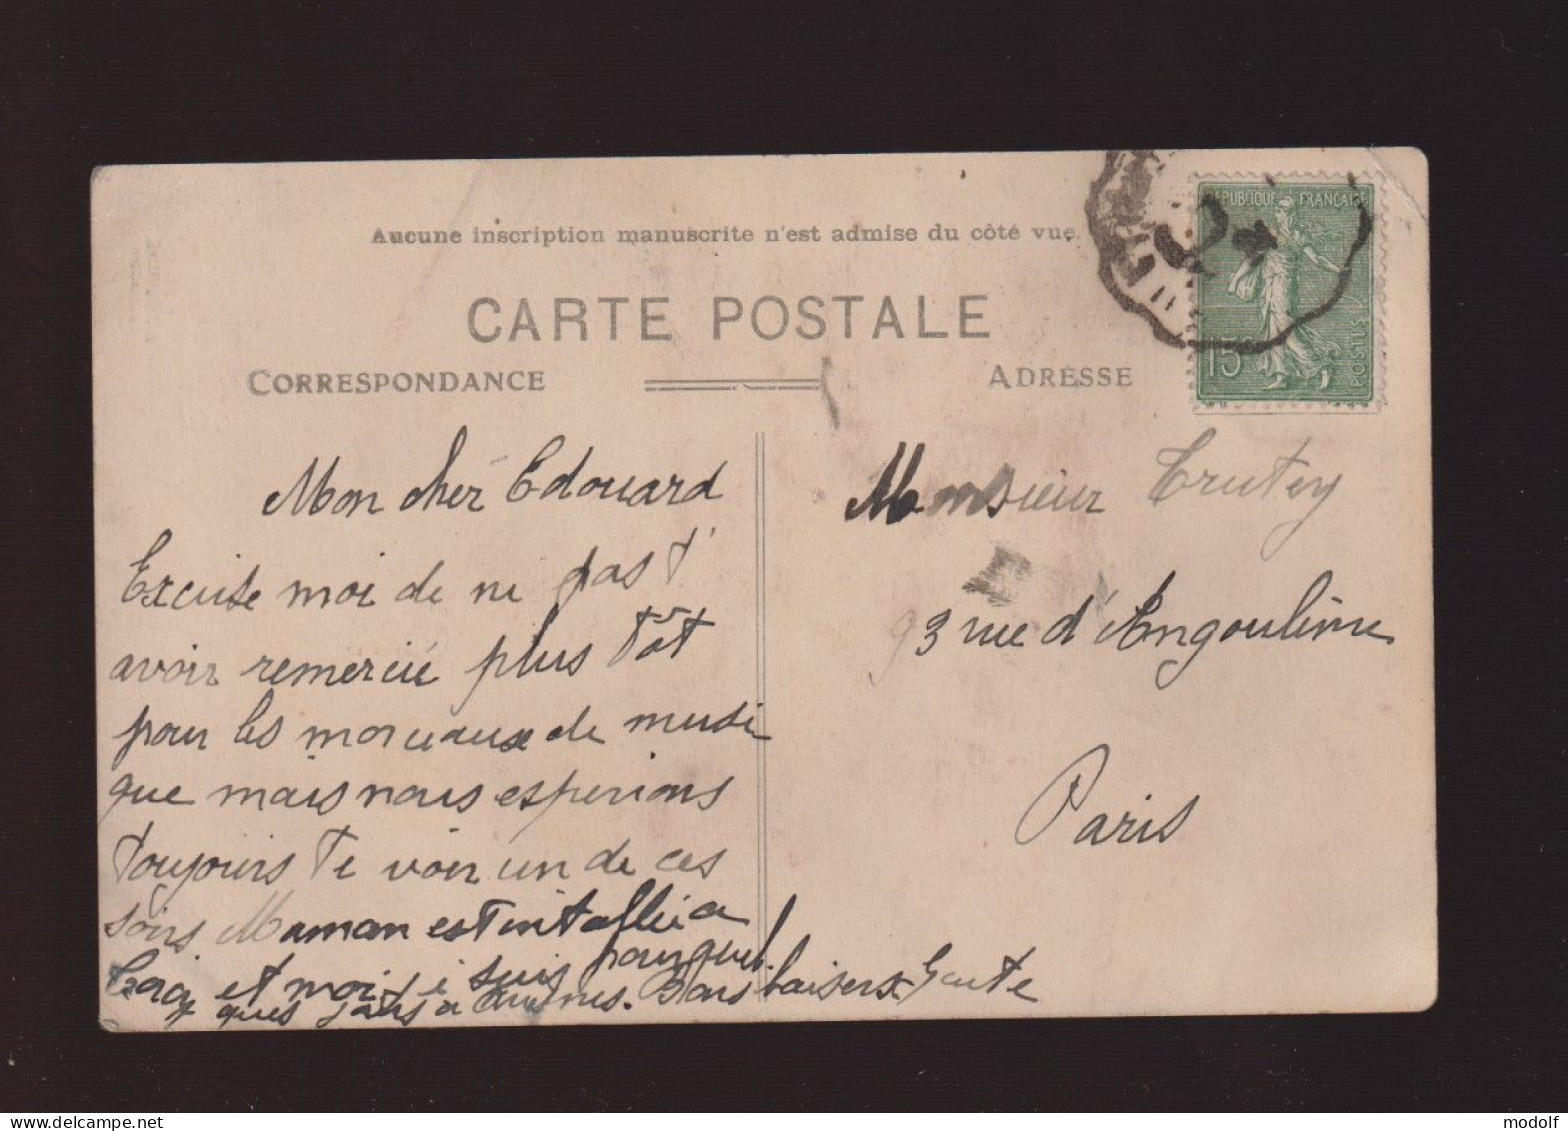 Aucune inscription manuscrite n'est admise du côté vue.
CARTE POSTALE
CORRESPONDANCE
ADRESSE
RÉPUBLIQUE FRANÇAISE
15
POSTES
Mon cher Edouard
Excuse moi de ne pas t'
avoir remercié plus tôt
pour les morceaux de musi
que mais nous esperions
toujours te voir un de ces
soirs Maman est
et moi je suis pour quel
ques jours a Bons baisers
Monsieur Trutey
93 rue d'Angoulême
Paris
www.delcampe.net
modolf